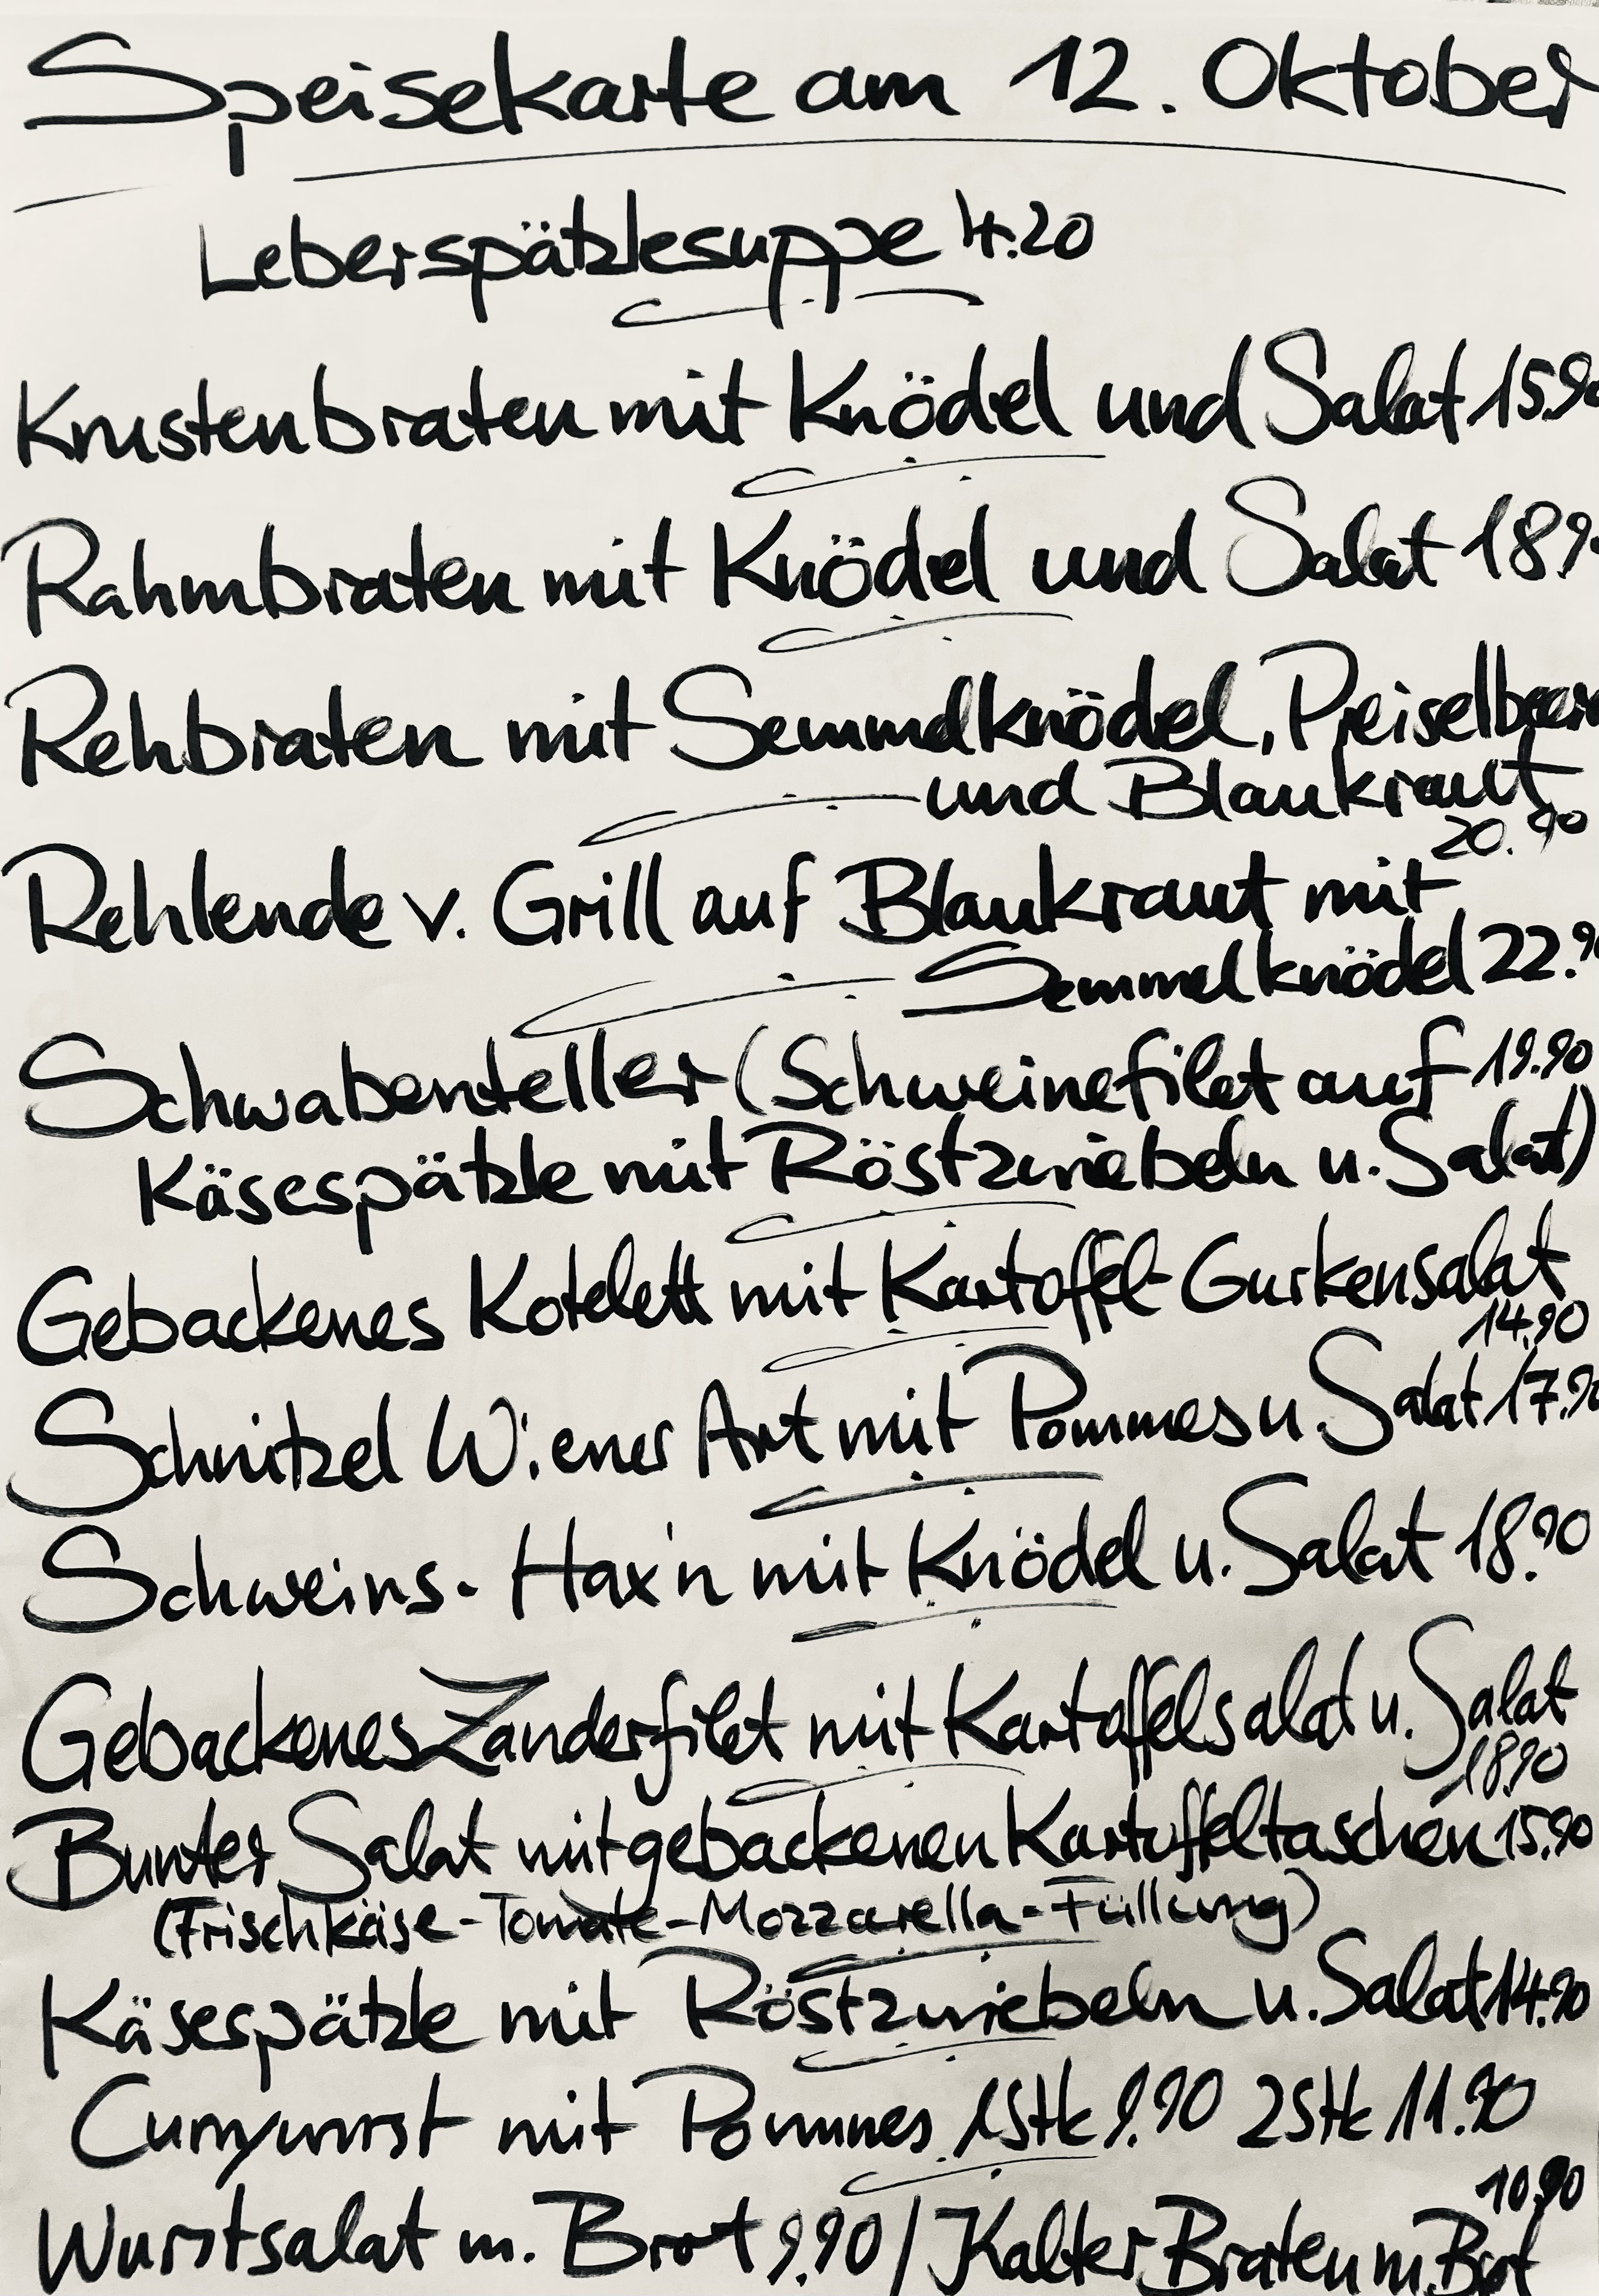 Speisekarte am 12. Oktober
Leberspätzlesuppe 4.20
Krustenbraten mit Knödel und Salat 15.90
Rahmbraten mit Knödel und Salat 18.9
Rehbraten mit Semmelknödel, Preiselbeer
und Blaukraut
20.90
Rehlende v. Grill auf Blaukraut mit
Semmelknödel 22.90
Schwabenteller (Schweinefilet auf 19.90
Käsespätzle mit Röstzwiebeln u. Salat)
Gebackenes Kotelett mit Kartoffel-Gurkensalat
14.90
Schnitzel Wiener Art mit Pommes u. Salat 17.90
Schweins-Hax'n mit Knödel u. Salat 18.90
Gebackenes Zanderfilet mit Kartoffelsalat u. Salat
18.90
Bunter Salat mit gebackenen Kartoffeltaschen 15.90
(Frischkäse-Tomate-Mozzarella-Füllung)
Käsespätzle mit Röstzwiebeln u. Salat 14.90
Currywurst mit Pommes 1Stk 9.90 2Stk 11.90
10.90
Wurstsalat m. Brot 9.90 / Kalter Braten m. Brot